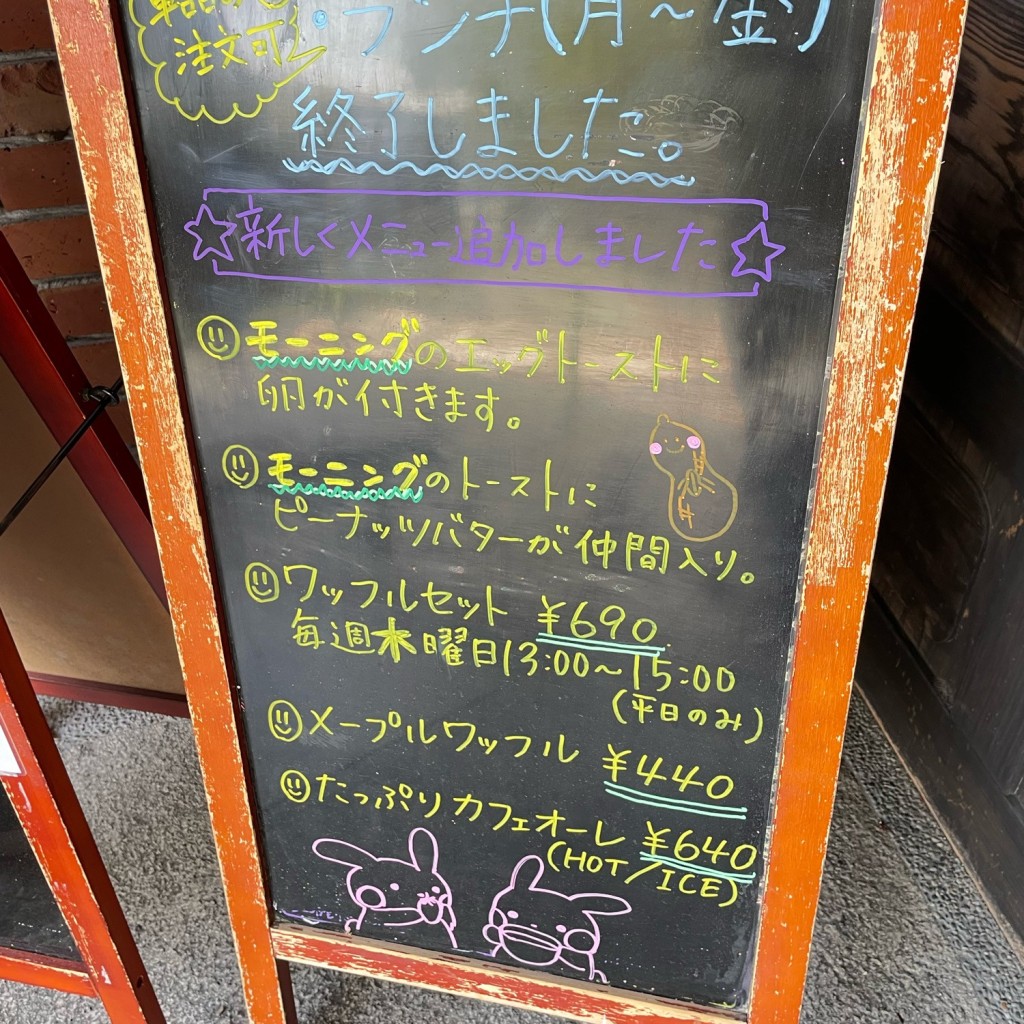 注文可
・ランチ(月～金)
終了しました。
☆新しくメニュー追加しました☆
モーニングのエッグトーストに
卵が付きます。
モーニングのトーストに
ピーナッツバターが仲間入り。
ワッフルセット ¥690
毎週木曜日13:00～15:00
(平日のみ)
メープルワッフル ¥440
たっぷりカフェオーレ ¥640
(HOT/ICE)